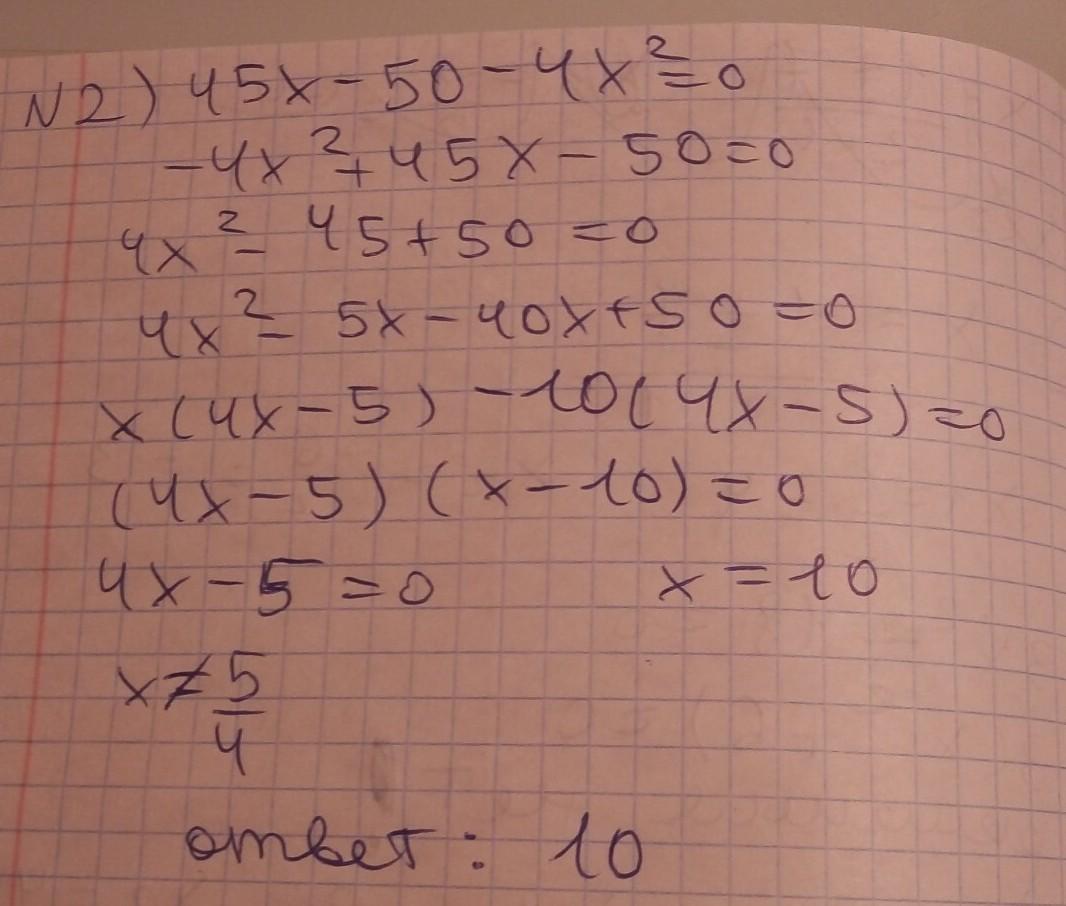 N2) 45x - 50 - 4x² = 0
-4x² + 45x - 50 = 0
4x² - 45 + 50 = 0
4x² - 5x - 40x + 50 = 0
x(4x - 5) - 10(4x - 5) = 0
(4x - 5) (x - 10) = 0
4x - 5 = 0 x = 10
x ≠ 5/4
ответ: 10